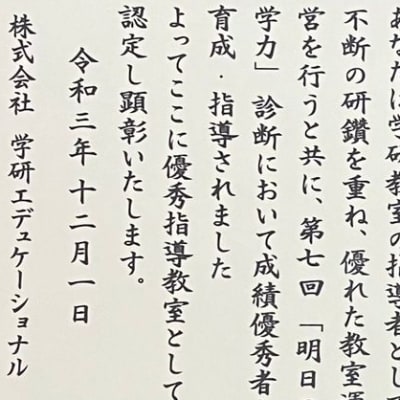 あなたは学研教室の指導者として
不断の研鑽を重ね、優れた教室運
営を行うと共に、第七回「明日
学力」診断において成績優秀者
育成・指導されました
よってここに優秀指導教室として
認定し顕彰いたします。
令和三年十二月一日
株式会社 学研エデュケーショナル